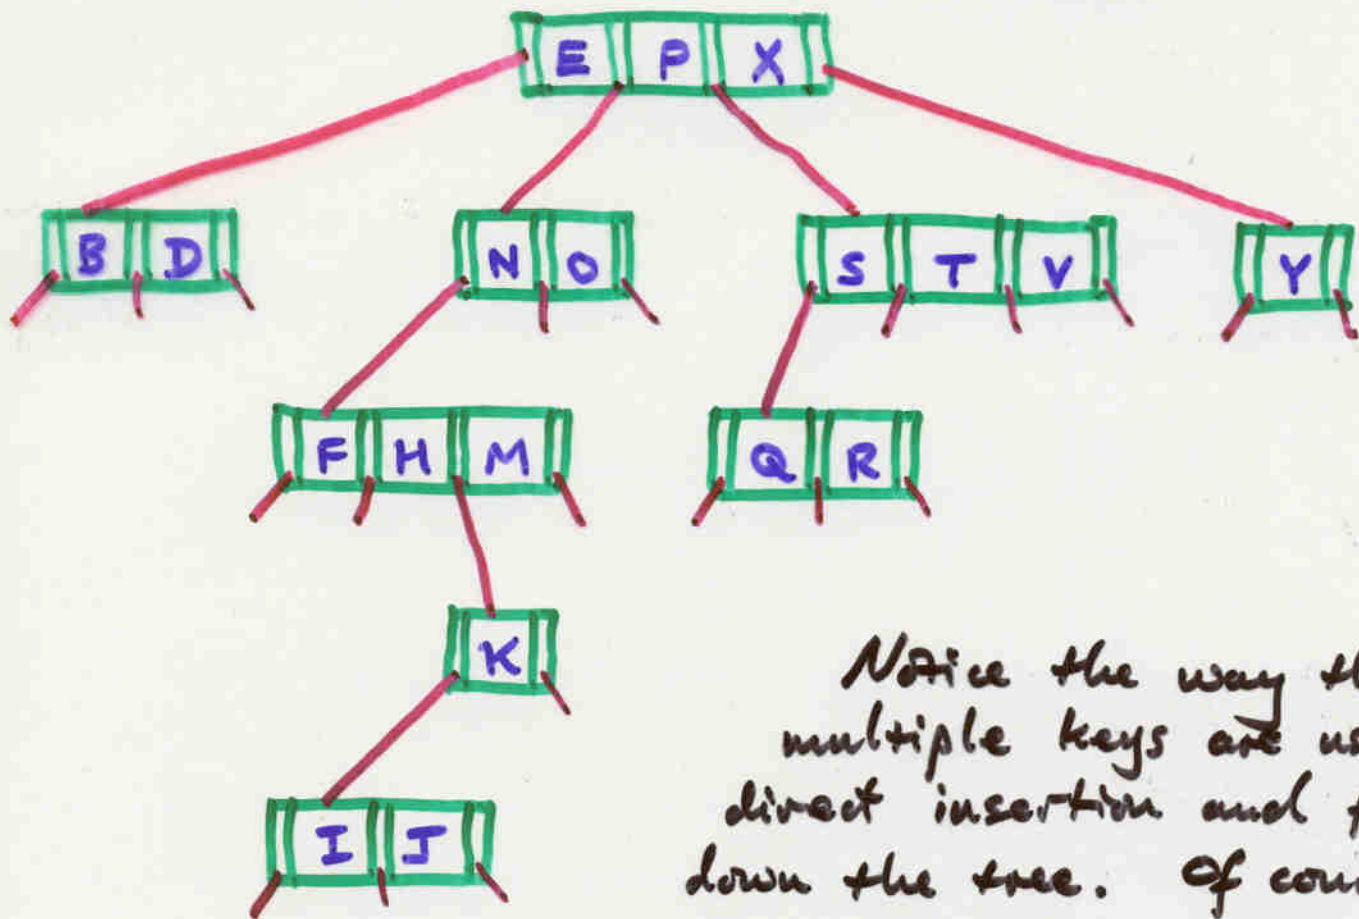 E P X
B D N O S T V Y
F H M Q R
K
I J
Notice the way
multiple keys are
direct insertion and
down the tree. Of